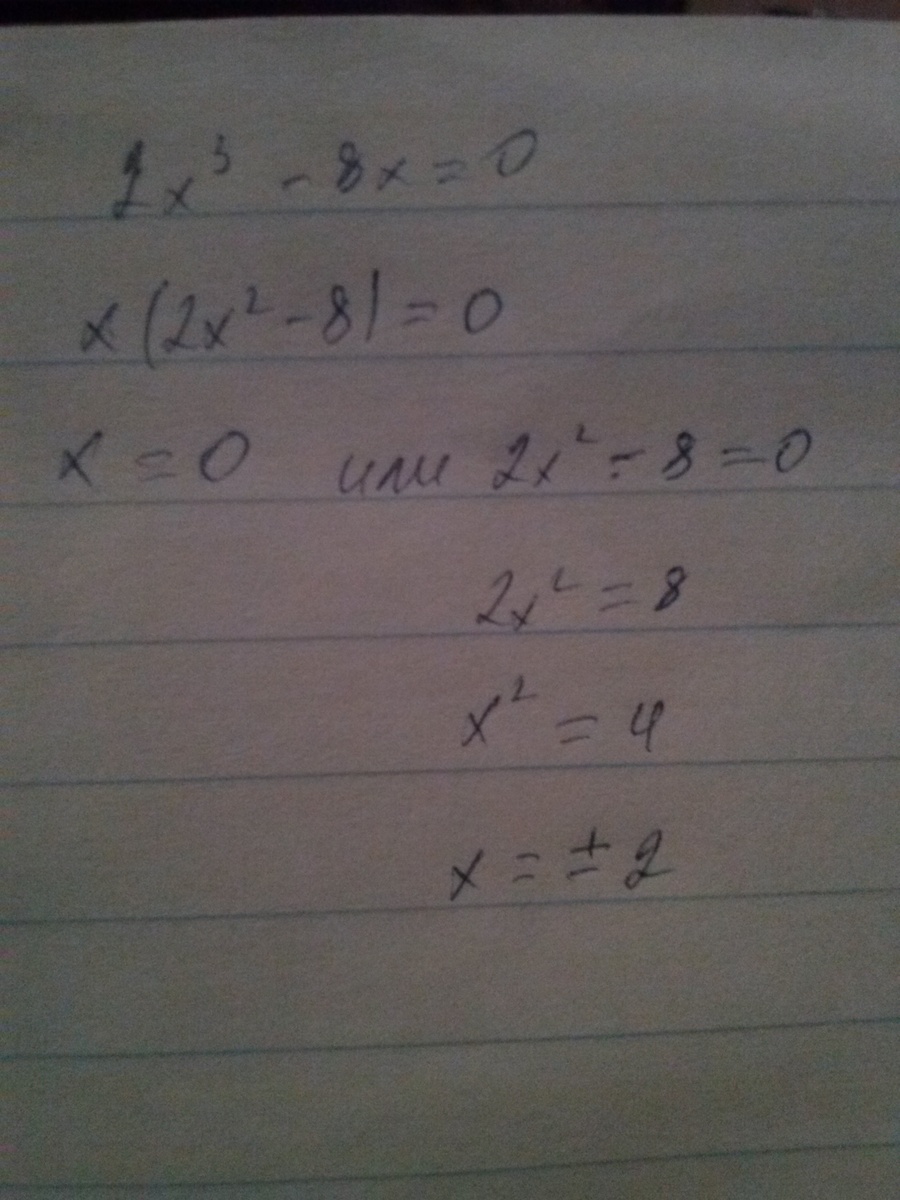 2x³ - 8x = 0
x(2x² - 8) = 0
x = 0 или 2x² - 8 = 0
2x² = 8
x² = 4
x = ± 2